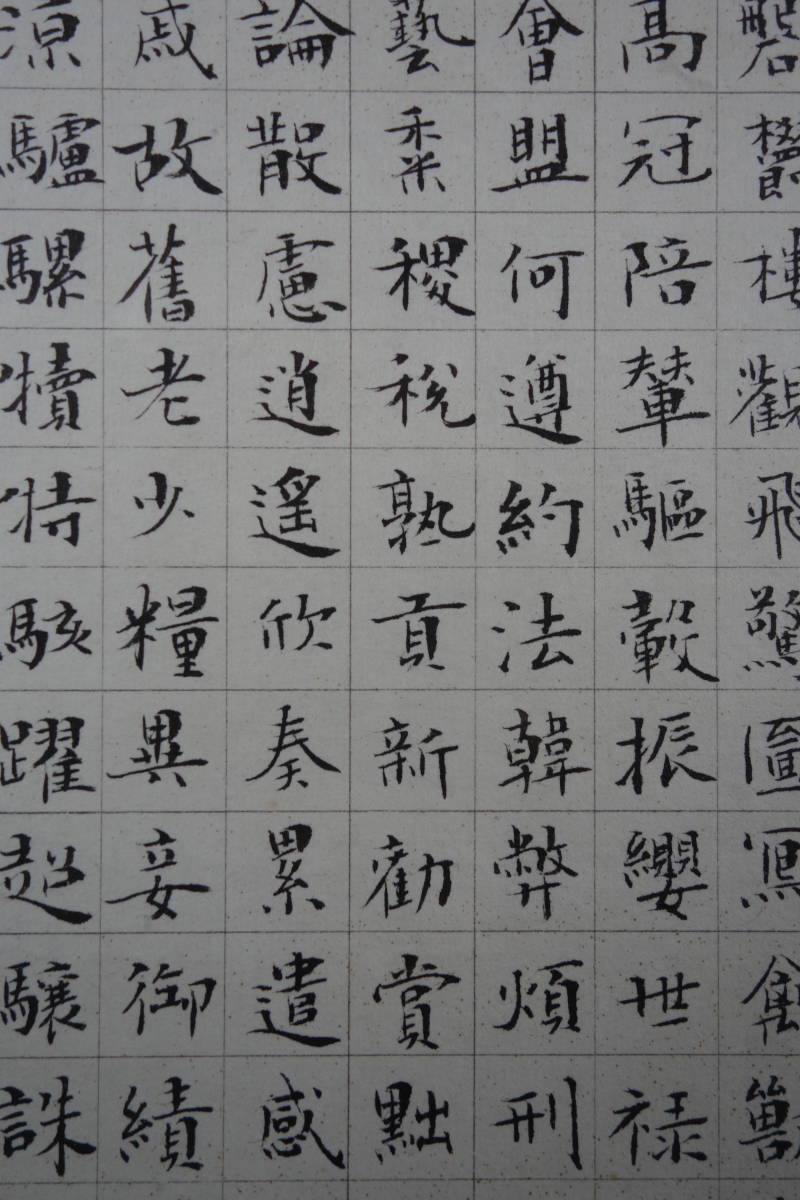 磐鬱樓觀飛驚圖寫禽獸
高冠陪輦驅轂振纓世禄
會盟何遵約法韓弊煩刑
藝黍稷稅熟貢新勸賞黜
論散慮逍遙欣奏累遣感
戚故舊老少糧異妾御績
涼驢騾犢特駭躍超驤誅